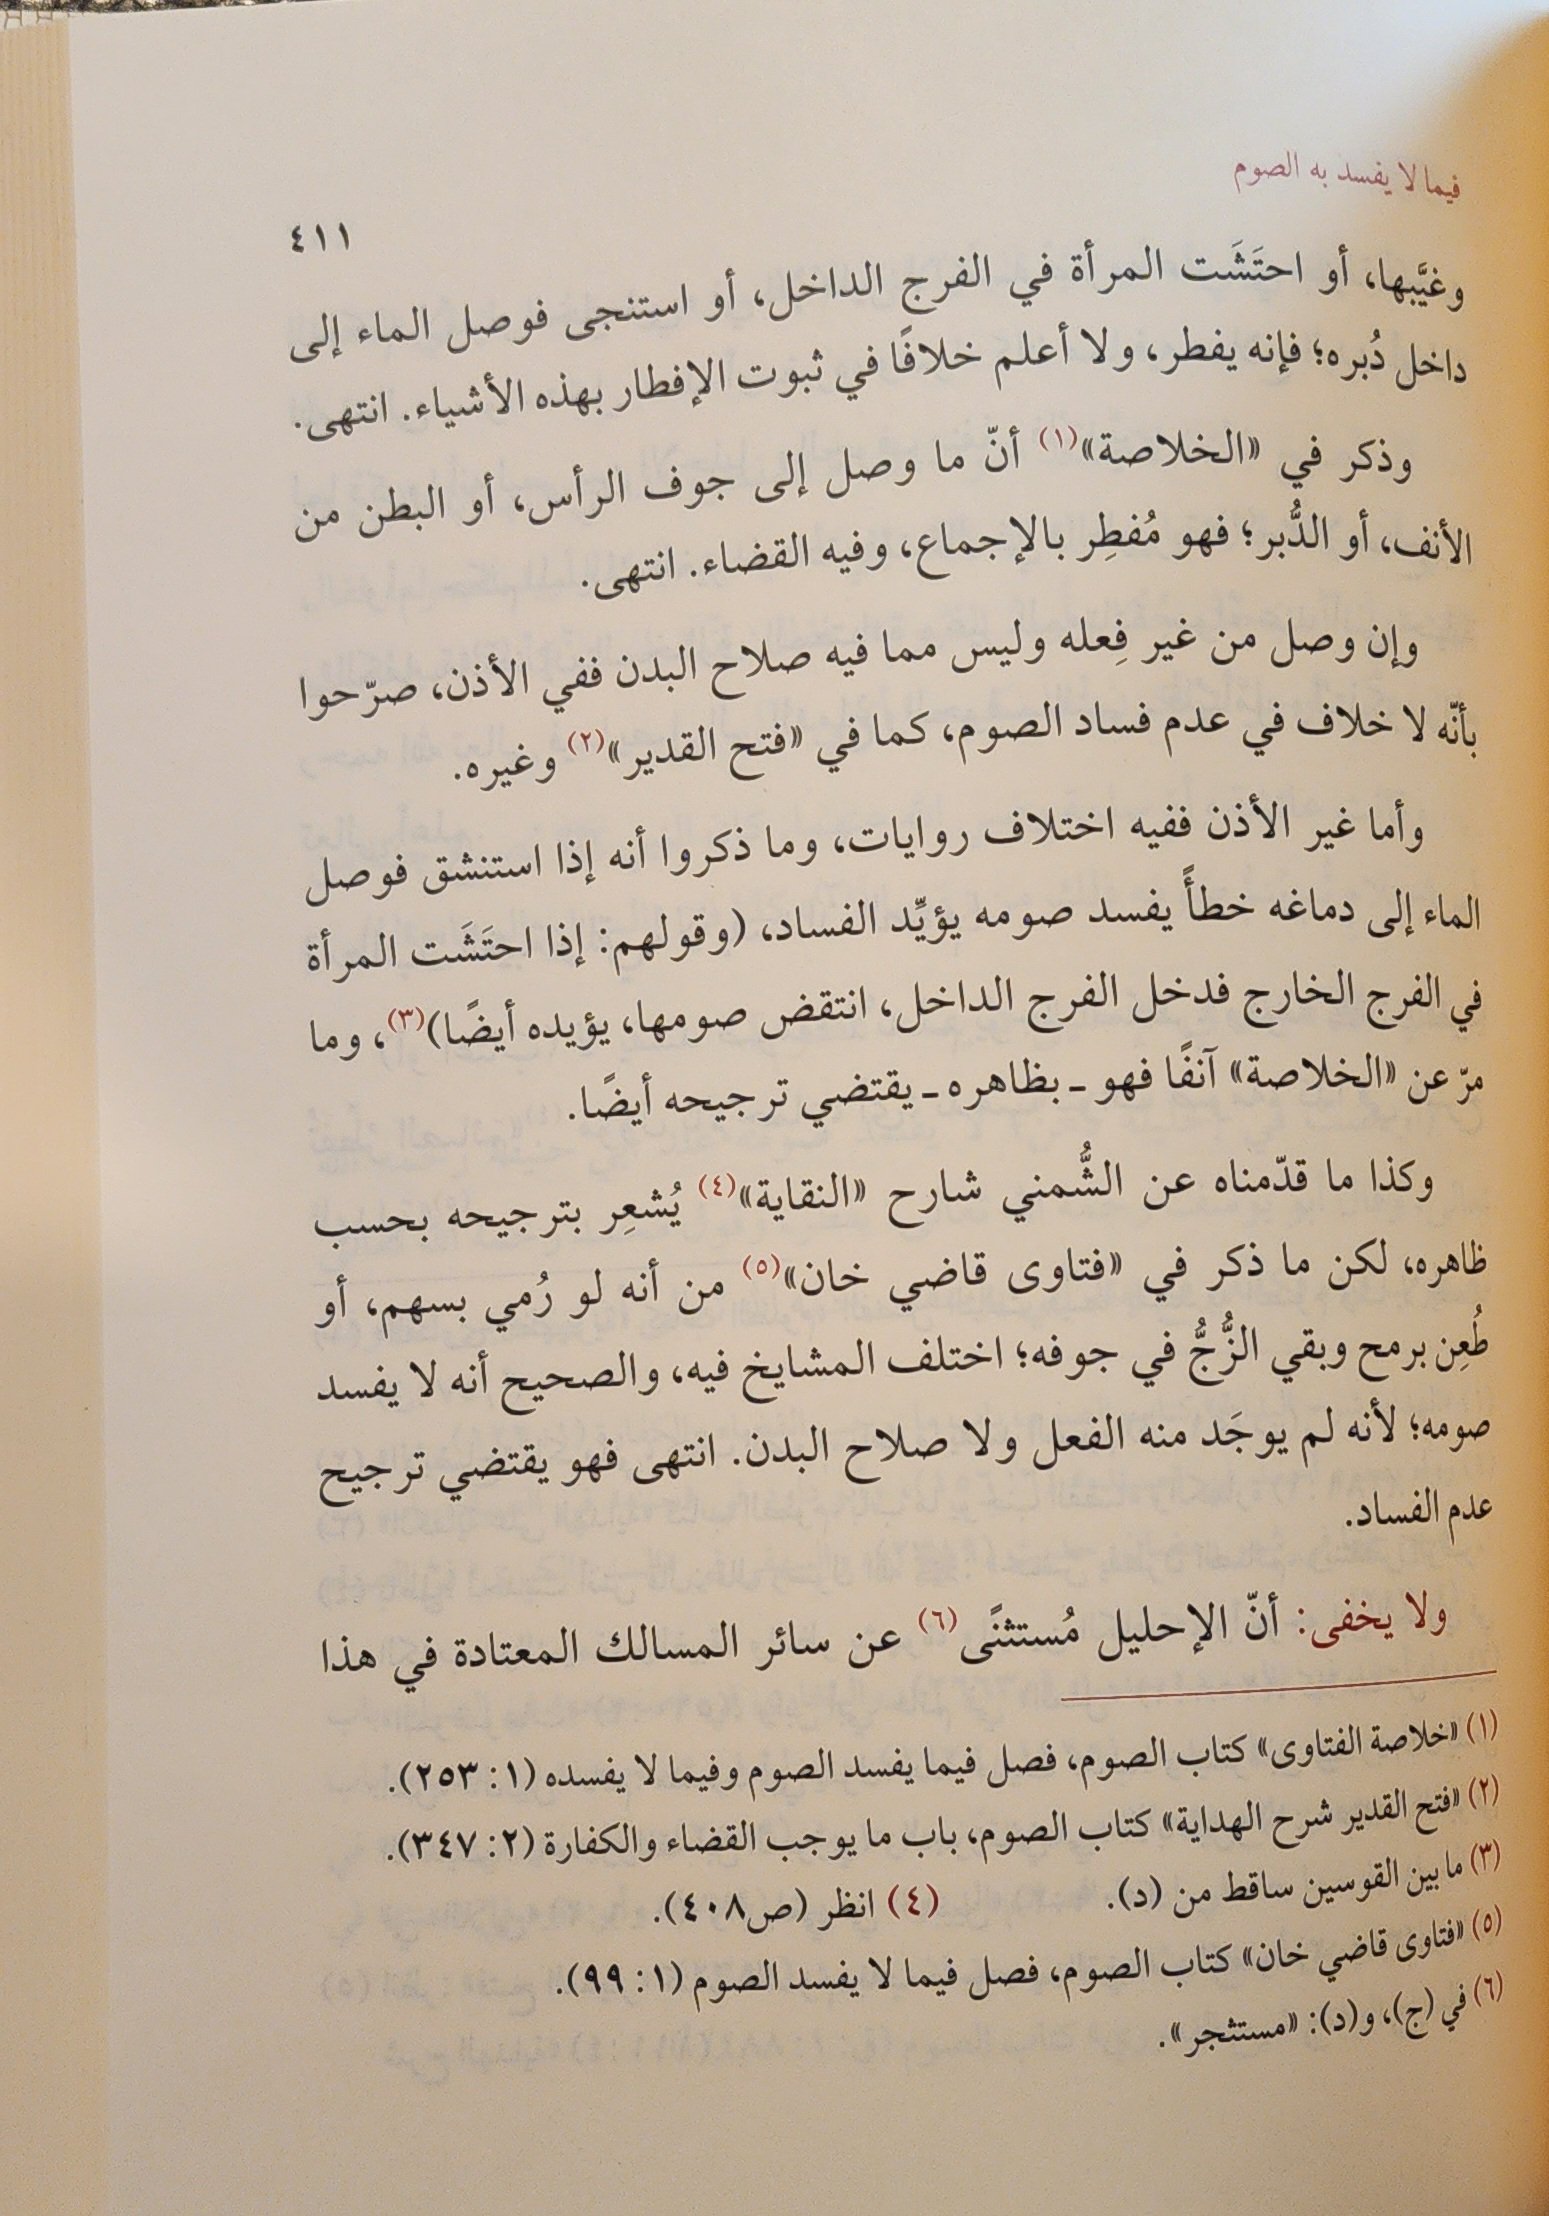 فيما لا يفسد به الصوم
٤١١
وغيَّبها، أو احتَشَت المرأة في الفرج الداخل، أو استنجى فوصل الماء إلى
داخل دُبره؛ فإنه يفطر، ولا أعلم خلافًا في ثبوت الإفطار بهذه الأشياء. انتهى.
وذكر في «الخلاصة»(١) أنّ ما وصل إلى جوف الرأس، أو البطن من
الأنف، أو الدُّبر؛ فهو مُفطِر بالإجماع، وفيه القضاء. انتهى.
وإن وصل من غير فِعله وليس مما فيه صلاح البدن ففي الأذن، صرّحوا
بأنّه لا خلاف في عدم فساد الصوم، كما في «فتح القدير»(٢) وغيره.
وأما غير الأذن ففيه اختلاف روايات، وما ذكروا أنه إذا استنشق فوصل
الماء إلى دماغه خطأً يفسد صومه يؤيِّد الفساد، (وقولهم: إذا احتَشَت المرأة
في الفرج الخارج فدخل الفرج الداخل، انتقض صومها، يؤيده أيضًا)(٣)، وما
مرّ عن «الخلاصة» آنفًا فهو ـ بظاهره ـ يقتضي ترجيحه أيضًا.
وكذا ما قدّمناه عن الشُّمني شارح «النقاية»(٤) يُشعِر بترجيحه بحسب
ظاهره، لكن ما ذكر في «فتاوى قاضي خان»(٥) من أنه لو رُمي بسهم، أو
طُعِن برمح وبقي الزُّجُّ في جوفه؛ اختلف المشايخ فيه، والصحيح أنه لا يفسد
صومه؛ لأنه لم يوجَد منه الفعل ولا صلاح البدن. انتهى فهو يقتضي ترجيح
عدم الفساد.
ولا يخفى: أنّ الإحليل مُستثنًى(٦) عن سائر المسالك المعتادة في هذا
(١) «خلاصة الفتاوى» كتاب الصوم، فصل فيما يفسد الصوم وفيما لا يفسده (١: ٢٥٣).
(٢) «فتح القدير شرح الهداية» كتاب الصوم، باب ما يوجب القضاء والكفارة (٢: ٣٤٧).
(٣) ما بين القوسين ساقط من (د). (٤) انظر (ص٤٠٨).
(٥) «فتاوى قاضي خان» كتاب الصوم، فصل فيما لا يفسد الصوم (١: ٩٩).
(٦) في (ج)، و(د): «مستثجر».